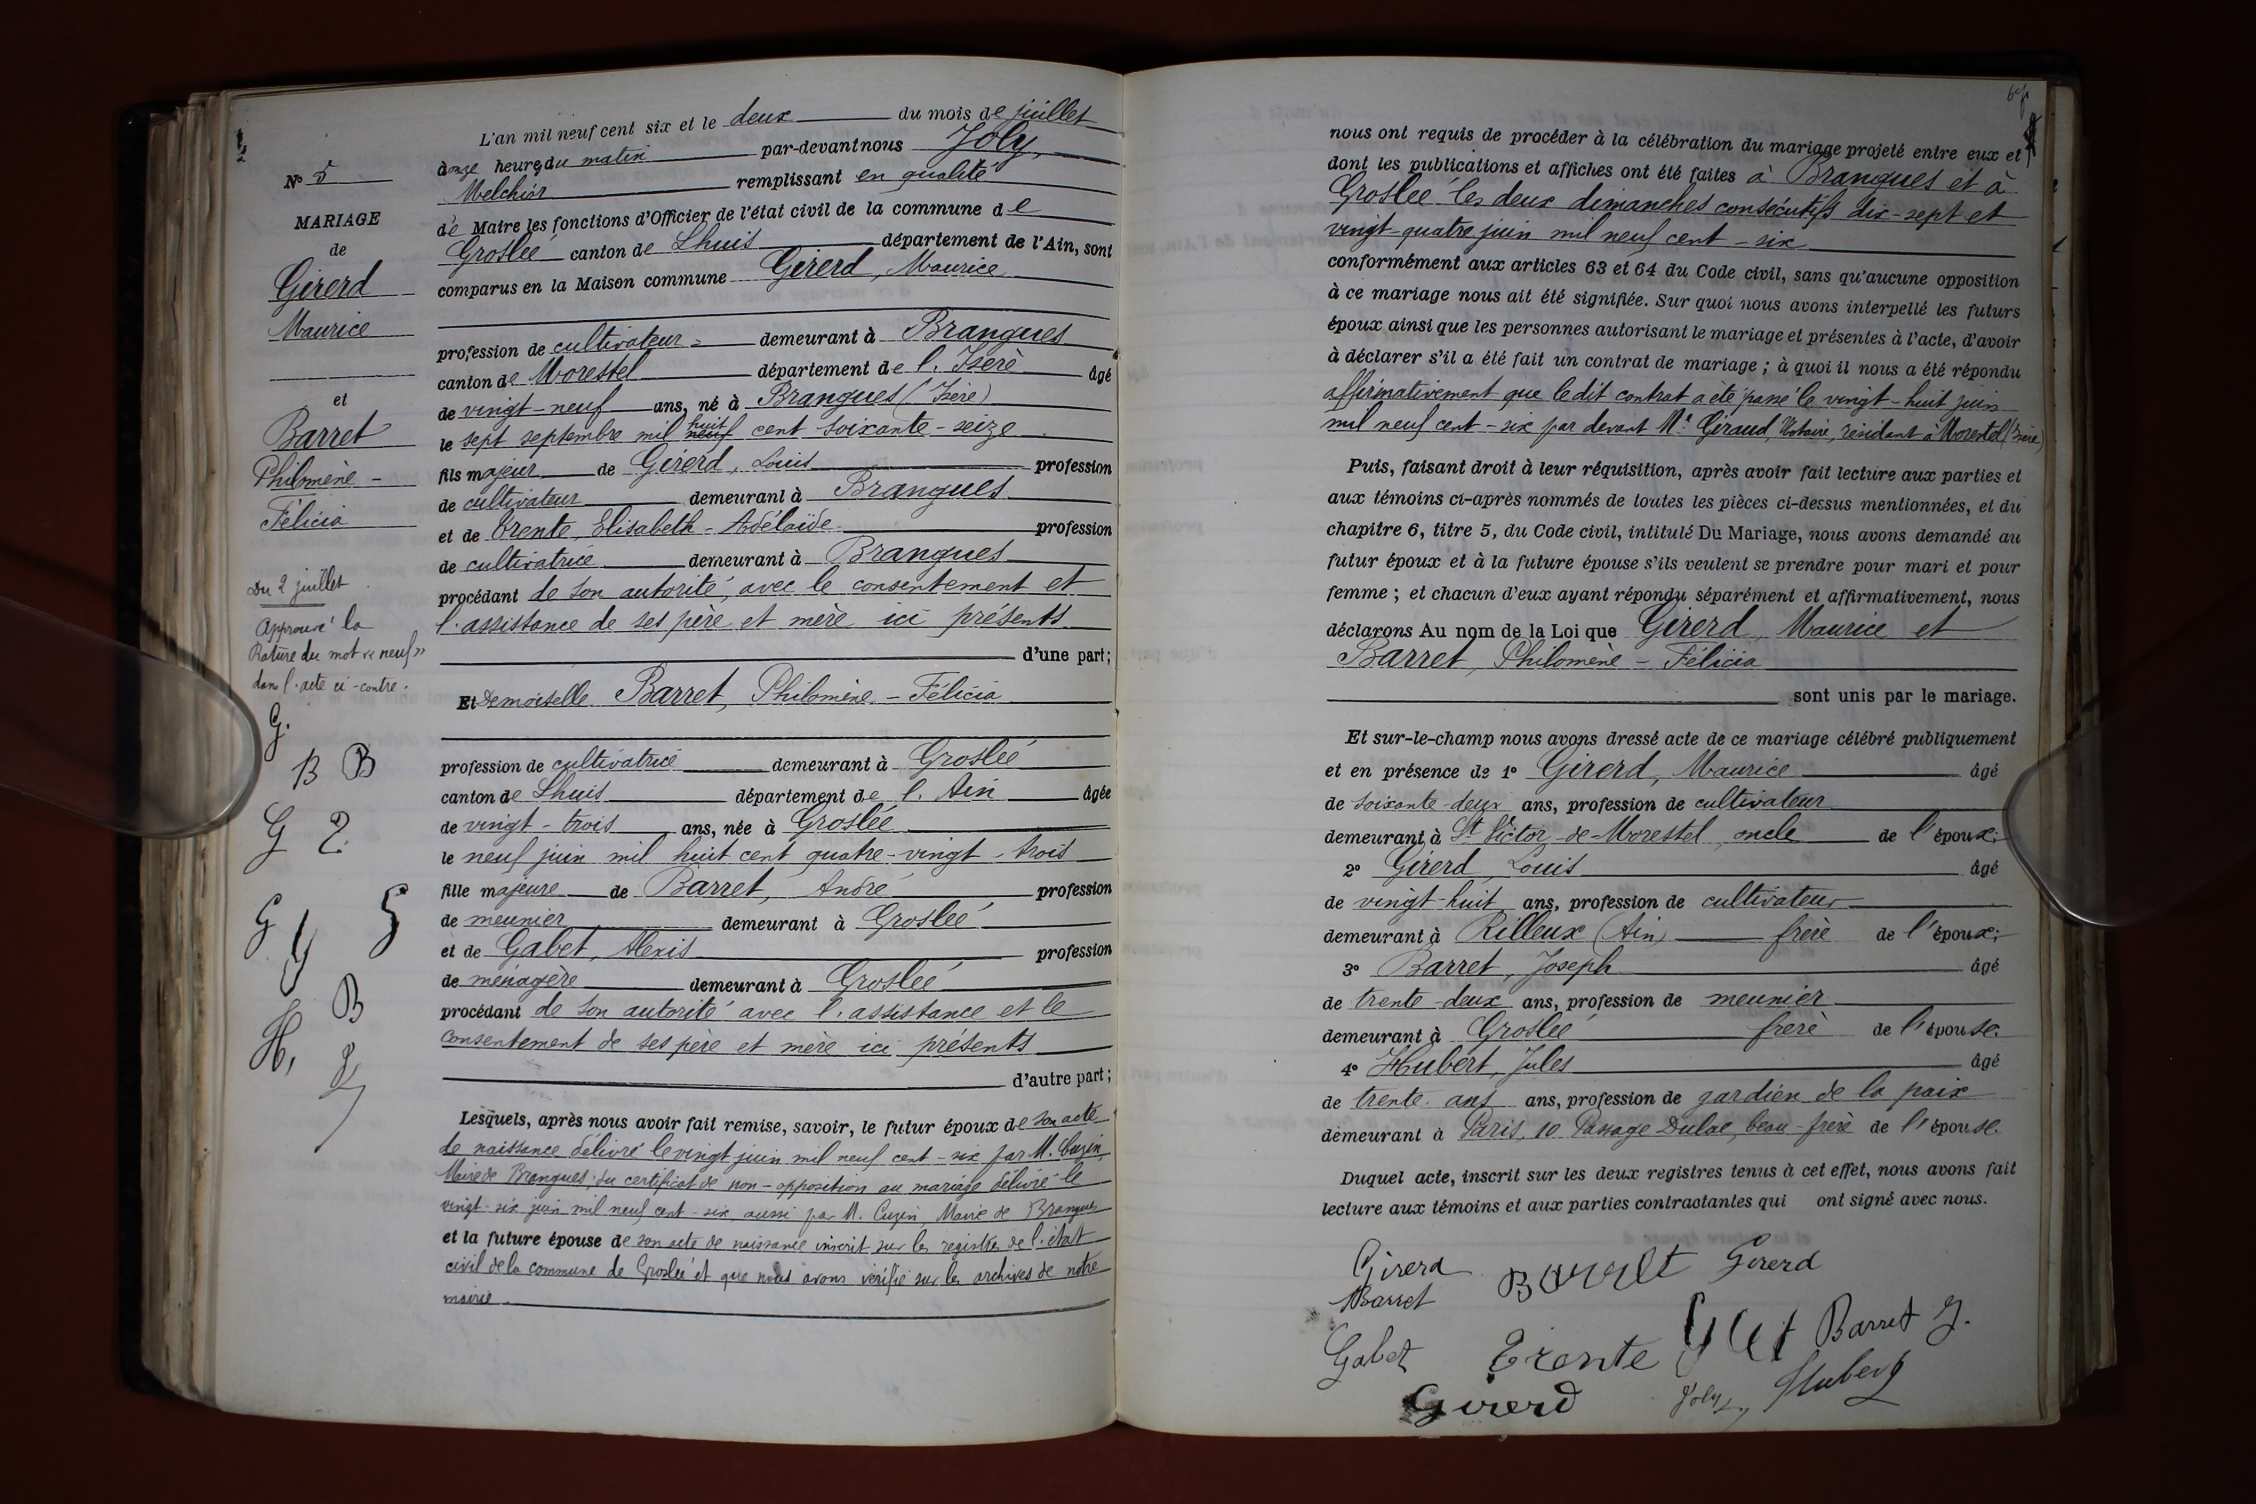 N° 5
MARIAGE
de
Girerd
Maurice
et
Barret
Philomène -
Félicia
Du 2 juillet
Approuvé la
Rature du mot « neuf »
dans l'acte ci-contre.
G.
B B
G
G G
B
H,
L'an mil neuf cent six et le deux du mois de juillet
à onze heures du matin par-devant nous Joly,
Melchior remplissant en qualité
de Maire les fonctions d'Officier de l'état civil de la commune de
Groslée canton de Lhuis département de l'Ain, sont
comparus en la Maison commune Girerd, Maurice
profession de cultivateur demeurant à Brangues
canton de Morestel département de l'Isère âgé
de vingt-neuf ans, né à Brangues (Isère)
huit
le sept septembre mil neuf cent soixante-seize
fils majeur de Girerd, Louis profession
de cultivateur demeurant à Brangues
et de Trente, Elisabeth-Adélaïde profession
de cultivatrice demeurant à Brangues
procédant de son autorité, avec le consentement et
l'assistance de ses père et mère ici présents
d'une part;
Et Demoiselle Barret, Philomène-Félicia
profession de cultivatrice demeurant à Groslée
canton de Lhuis département de l'Ain âgée
de vingt-trois ans, née à Groslée
le neuf juin mil huit cent quatre-vingt-trois
fille majeure de Barret, André profession
de meunier demeurant à Groslée
et de Gabet, Alexis profession
de ménagère demeurant à Groslée
procédant de son autorité avec l'assistance et le
consentement de ses père et mère ici présents
d'autre part;
Lesquels, après nous avoir fait remise, savoir, le futur époux de son acte
de naissance délivré le vingt juin mil neuf cent-six par M. Cuzin,
Maire de Brangues; du certificat de non-opposition au mariage délivré le
vingt-six juin mil neuf cent-six, aussi par M. Cuzin, Maire de Brangues
et la future épouse de son acte de naissance inscrit sur les registres de l'état
civil de la commune de Groslée et que nous avons vérifié sur les archives de notre
mairie.
nous ont requis de procéder à la célébration du mariage projeté entre eux et
dont les publications et affiches ont été faites à Brangues et à
Groslée les deux dimanches consécutifs dix-sept et
vingt-quatre juin mil neuf cent-six
conformément aux articles 63 et 64 du Code civil, sans qu'aucune opposition
à ce mariage nous ait été signifiée. Sur quoi nous avons interpellé les futurs
époux ainsi que les personnes autorisant le mariage et présentes à l'acte, d'avoir
à déclarer s'il a été fait un contrat de mariage; à quoi il nous a été répondu
affirmativement que le dit contrat a été passé le vingt-huit juin
mil neuf cent-six par devant Me Giraud, Notaire, résidant à Morestel (Isère)
Puis, faisant droit à leur réquisition, après avoir fait lecture aux parties et
aux témoins ci-après nommés de toutes les pièces ci-dessus mentionnées, et du
chapitre 6, titre 5, du Code civil, intitulé Du Mariage, nous avons demandé au
futur époux et à la future épouse s'ils veulent se prendre pour mari et pour
femme; et chacun d'eux ayant répondu séparément et affirmativement, nous
déclarons Au nom de la Loi que Girerd, Maurice et
Barret, Philomène-Félicia
sont unis par le mariage.
Et sur-le-champ nous avons dressé acte de ce mariage célébré publiquement
et en présence de 1° Girerd, Maurice âgé
de soixante-deux ans, profession de cultivateur
demeurant à St Victor-de-Morestel, oncle de l'époux;
2° Girerd, Louis âgé
de vingt-huit ans, profession de cultivateur
demeurant à Rillieux (Ain) frère de l'époux;
3° Barret, Joseph âgé
de trente-deux ans, profession de meunier
demeurant à Groslée frère de l'épouse.
4° Hubert, Jules âgé
de trente ans ans, profession de gardien de la paix
demeurant à Paris, 10 Passage Dulac, beau-frère de l'épouse.
Duquel acte, inscrit sur les deux registres tenus à cet effet, nous avons fait
lecture aux témoins et aux parties contractantes qui ont signé avec nous.
Girerd Barret Girerd
Barret
Gabet Trente Barret J.
Girerd Joly Hubert